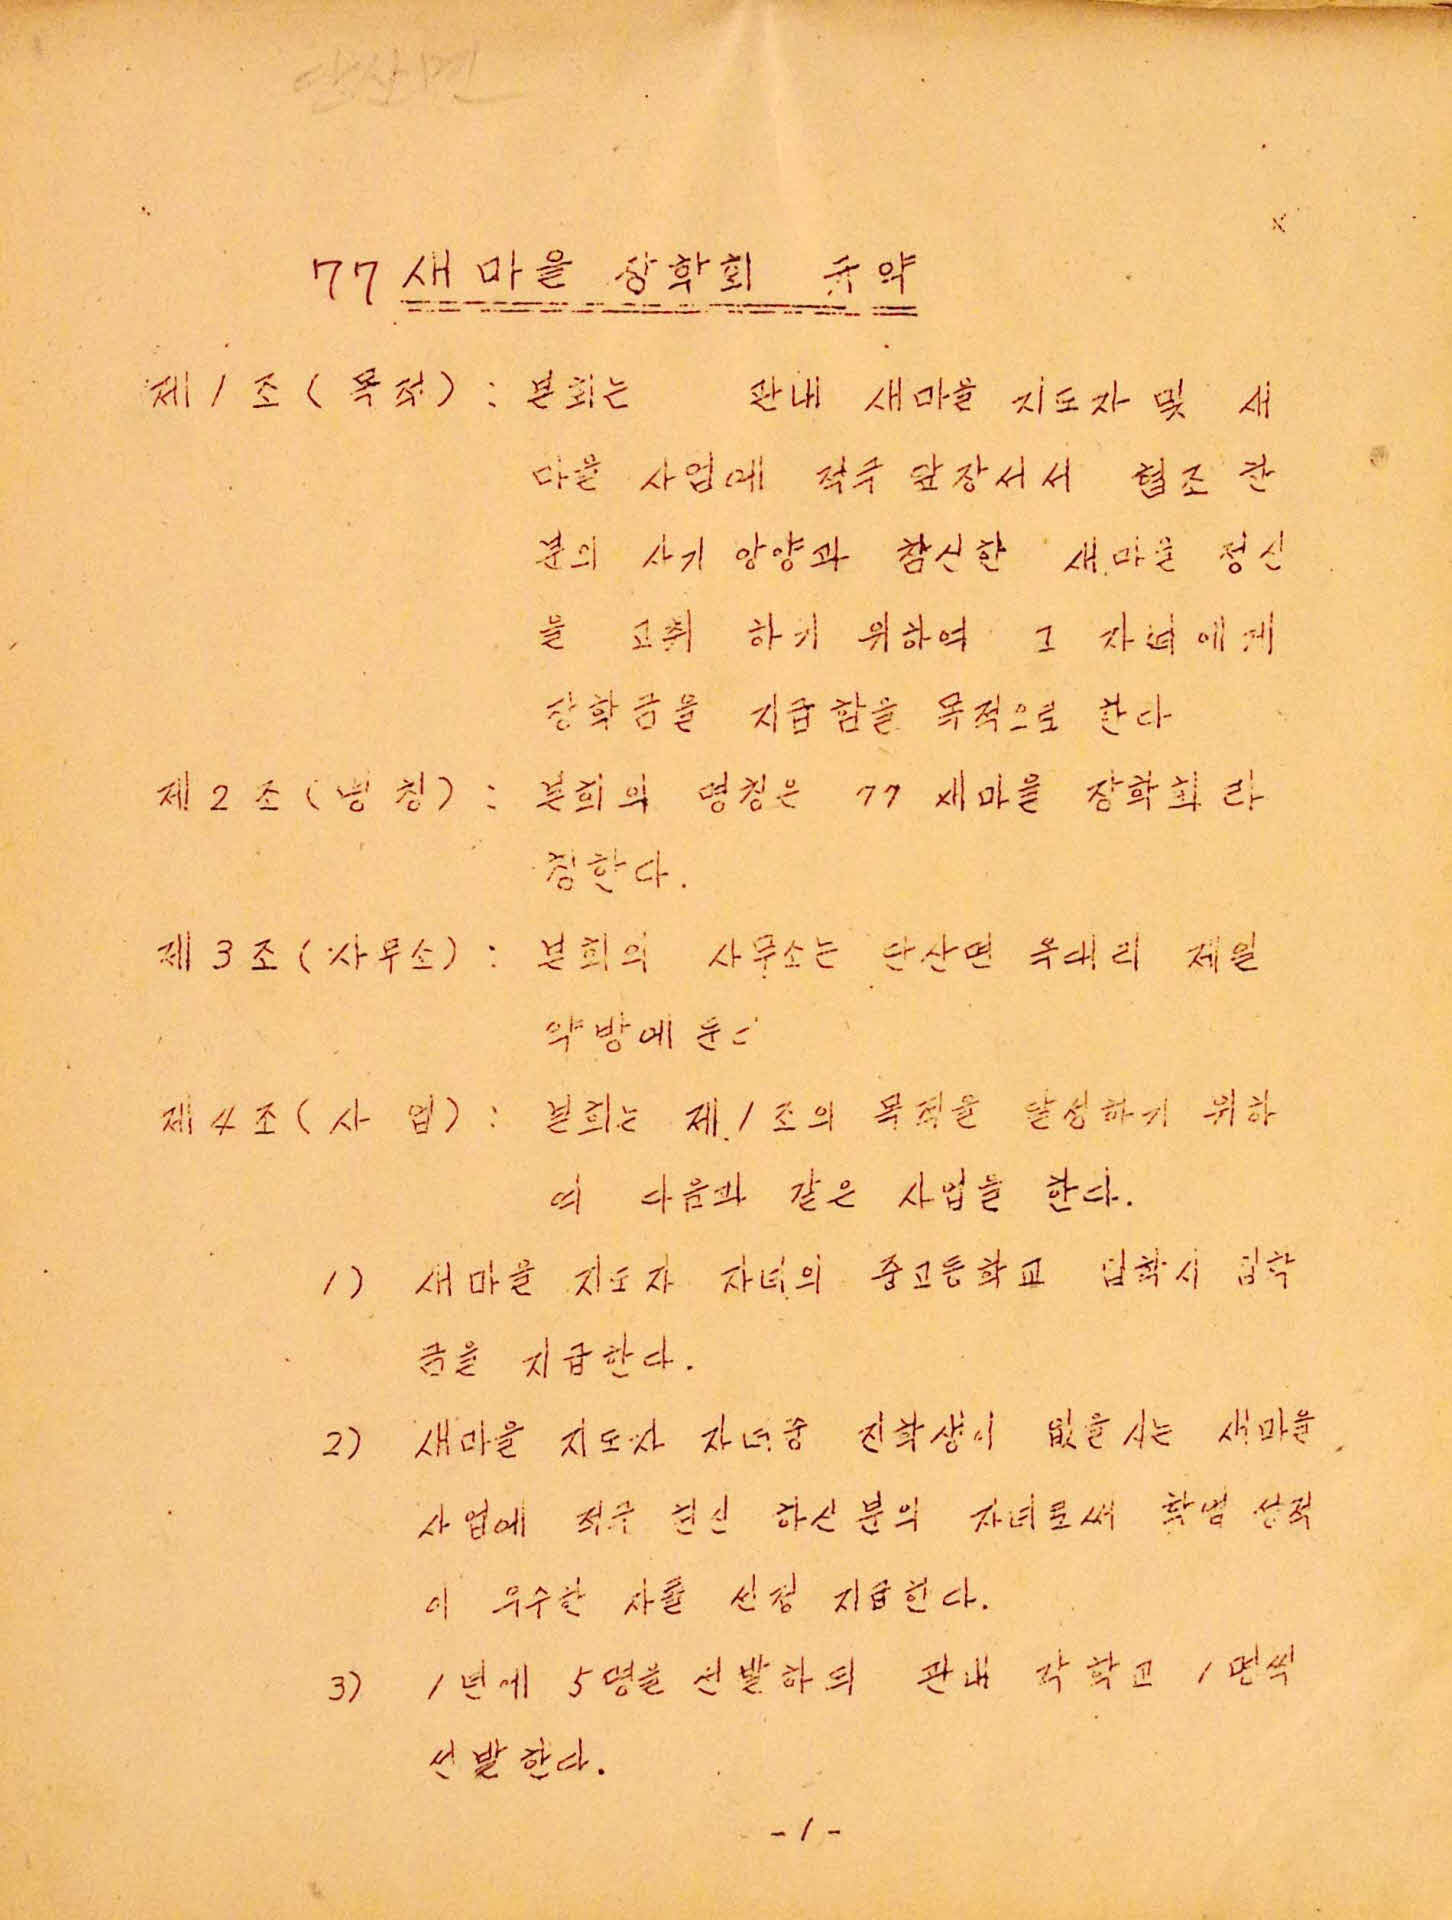 단산면
77 새마을 장학회 규약
제1조(목적): 본회는 관내 새마을 지도자 및 새
마을 사업에 적극 앞장서서 협조한
분의 사기 앙양과 참신한 새마을 정신
을 고취 하기 위하여 그 자녀에게
장학금을 지급함을 목적으로 한다
제2조(명칭): 본회의 명칭은 77 새마을 장학회라
칭한다.
제3조(사무소): 본회의 사무소는 단산면 옥대리 제일
약방에 둔다
제4조(사업): 본회는 제1조의 목적을 달성하기 위하
여 다음과 같은 사업을 한다.
1) 새마을 지도자 자녀의 중고등학교 입학시 입학
금을 지급한다.
2) 새마을 지도자 자녀중 진학생이 없을시는 새마을
사업에 적극 헌신 하신분의 자녀로써 학업 성적
이 우수한 자를 선정 지급한다.
3) 1년에 5명을 선발하되 관내 각학교 1명씩
선발한다.
-1-